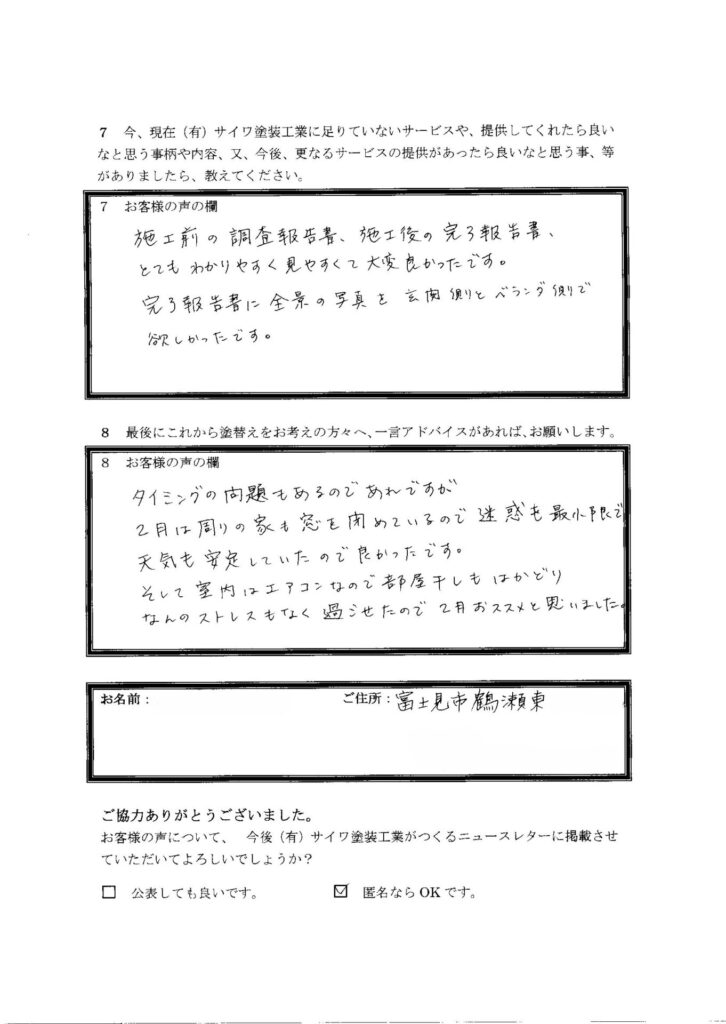 7 今、現在（有）サイワ塗装工業に足りていないサービスや、提供してくれたら良い
なと思う事柄や内容、又、今後、更なるサービスの提供があったら良いなと思う事、等
がありましたら、教えてください。
7 お客様の声の欄
施工前の調査報告書、施工後の完了報告書、
とてもわかりやすく見やすくて大変良かったです。
完了報告書に全景の写真を玄関側とベランダ側で
欲しかったです。
8 最後にこれから塗替えをお考えの方々へ、一言アドバイスがあれば、お願いします。
8 お客様の声の欄
タイミングの問題もあるのであれですが
2月は周りの家も窓を閉めているので迷惑も最小限で
天気も安定していたので良かったです。
そして室内はエアコンなので部屋干しもはかどり
なんのストレスもなく過ごせたので2月おススメと思いました。
お名前： ご住所：富士見市鶴瀬東
ご協力ありがとうございました。
お客様の声について、 今後（有）サイワ塗装工業がつくるニュースレターに掲載させ
ていただいてよろしいでしょうか？
□ 公表しても良いです。 ☑ 匿名なら OK です。